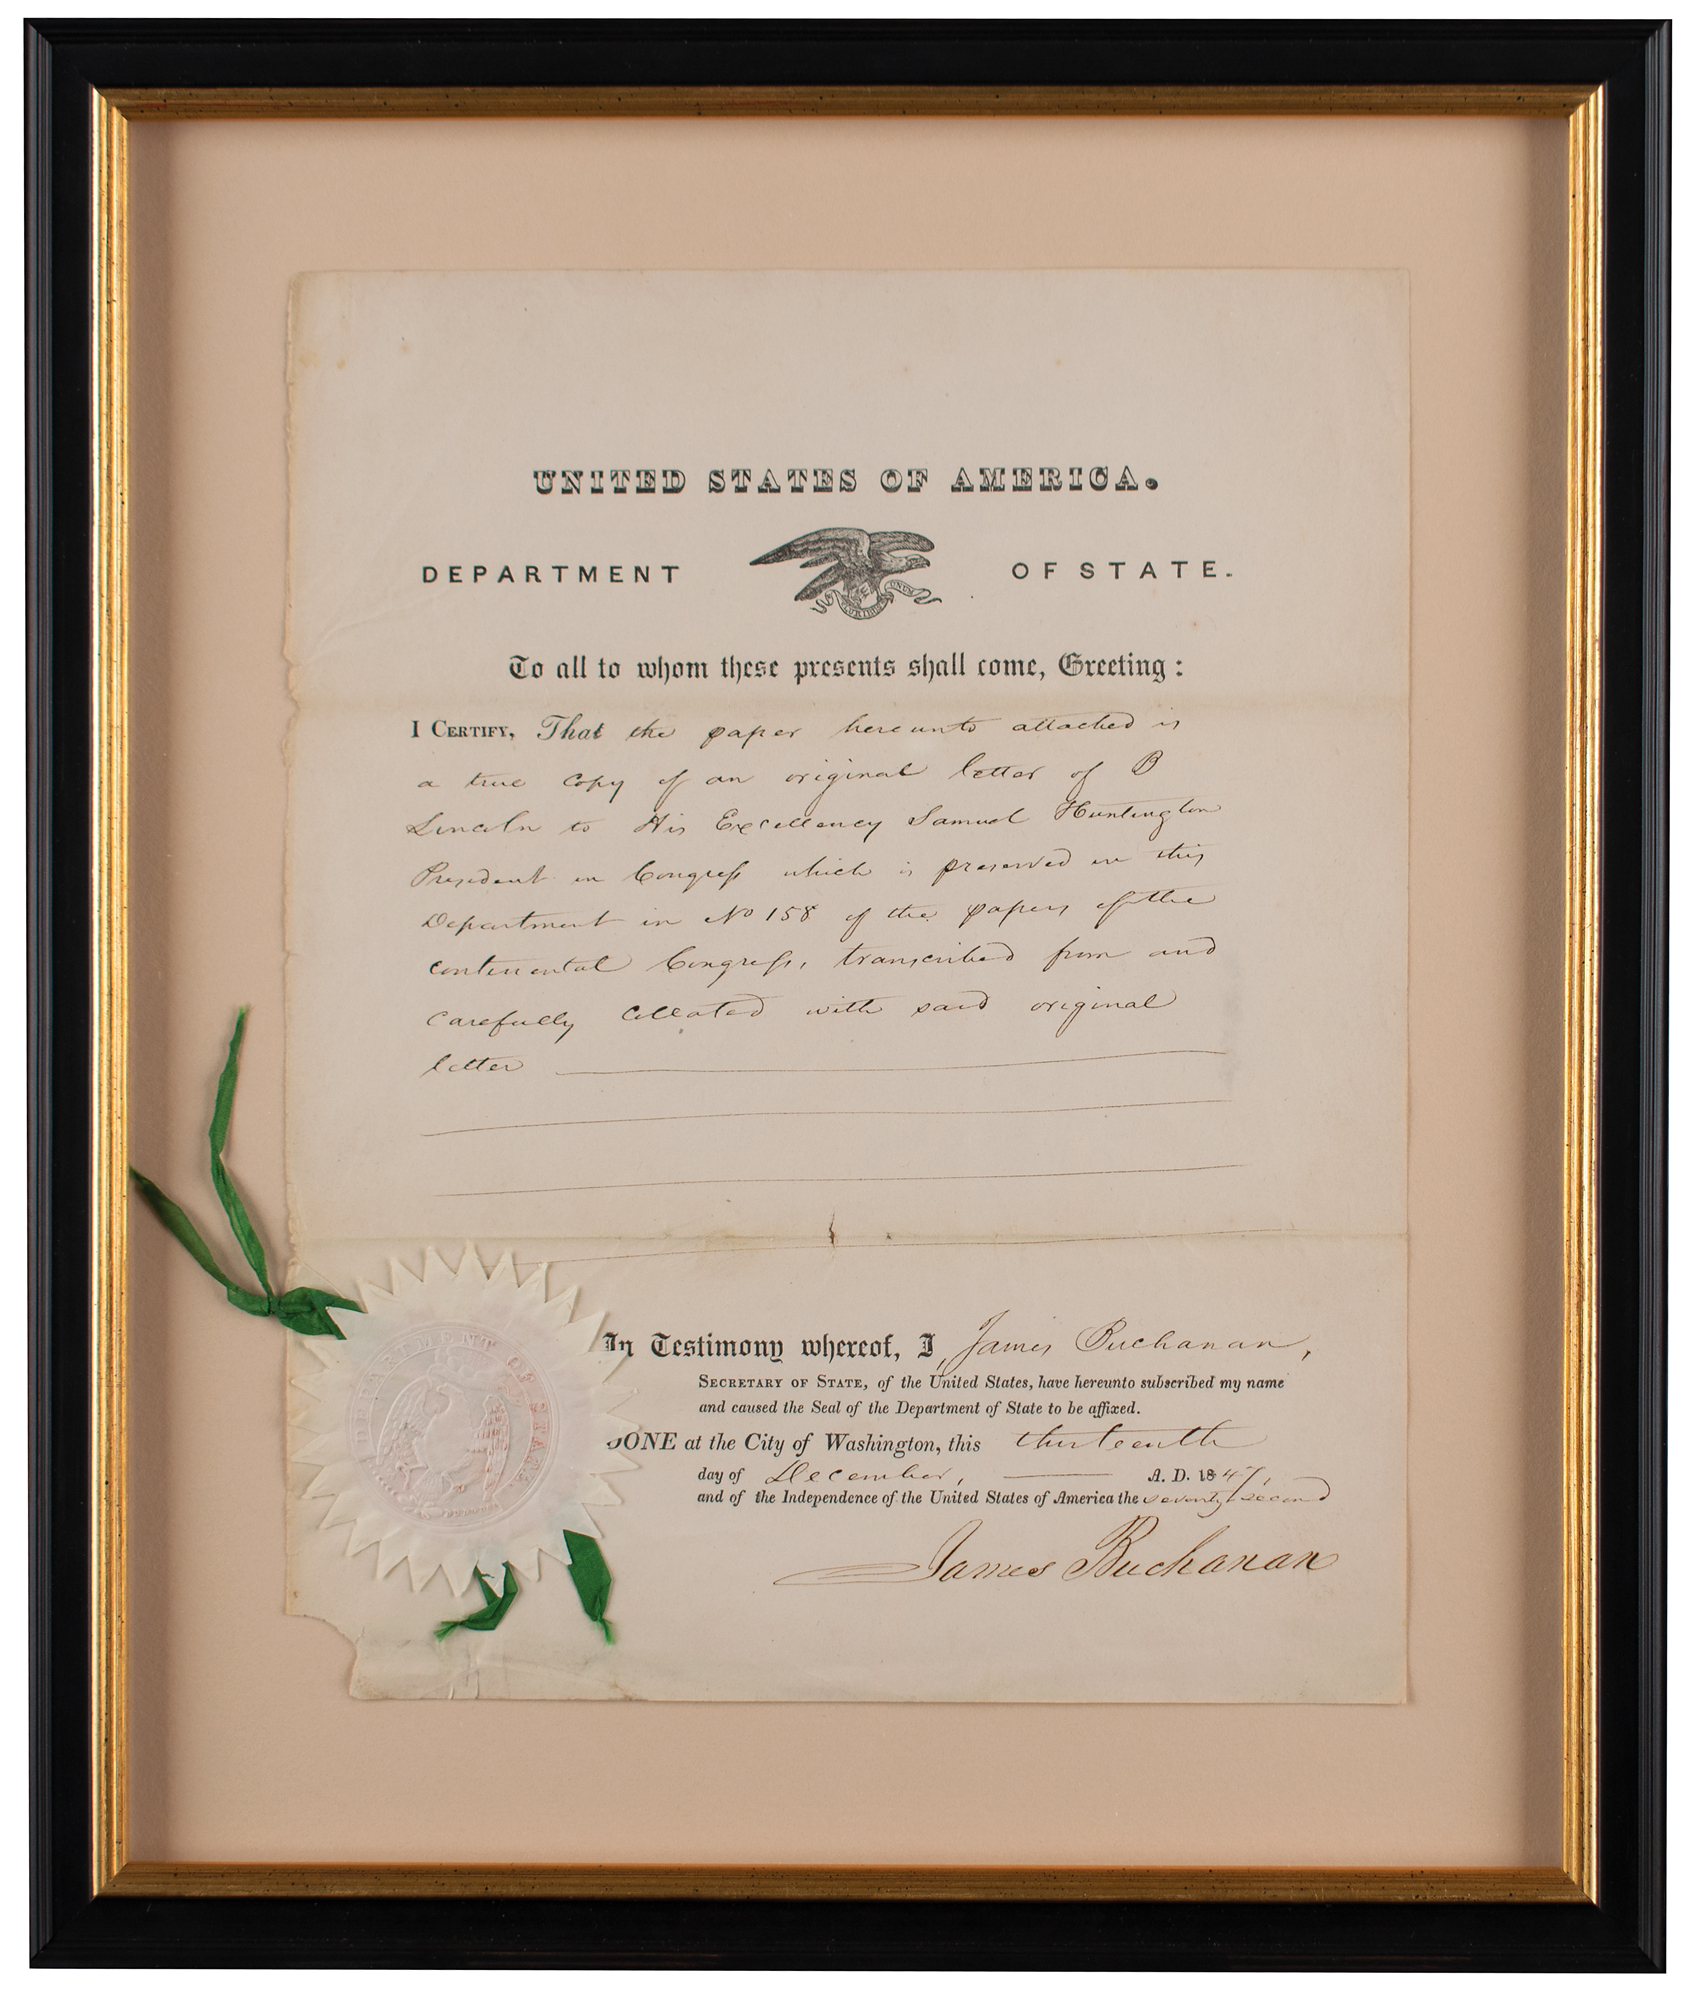 UNITED STATES OF AMERICA.
DEPARTMENT OF STATE.
E PLURIBUS UNUM
To all to whom these presents shall come, Greeting:
I CERTIFY, That the paper hereunto attached is
a true copy of an original letter of B
Lincoln to His Excellency Samuel Huntington
President in Congress which is preserved in this
Department in No 158 of the papers of the
continental Congress, transcribed from and
carefully collated with said original
letter
In Testimony whereof, I, James Buchanan,
SECRETARY OF STATE, of the United States, have hereunto subscribed my name
and caused the Seal of the Department of State to be affixed.
DONE at the City of Washington, this thirteenth
day of December, A. D. 1847,
and of the Independence of the United States of America the seventy second
James Buchanan
DEPARTMENT OF STATE